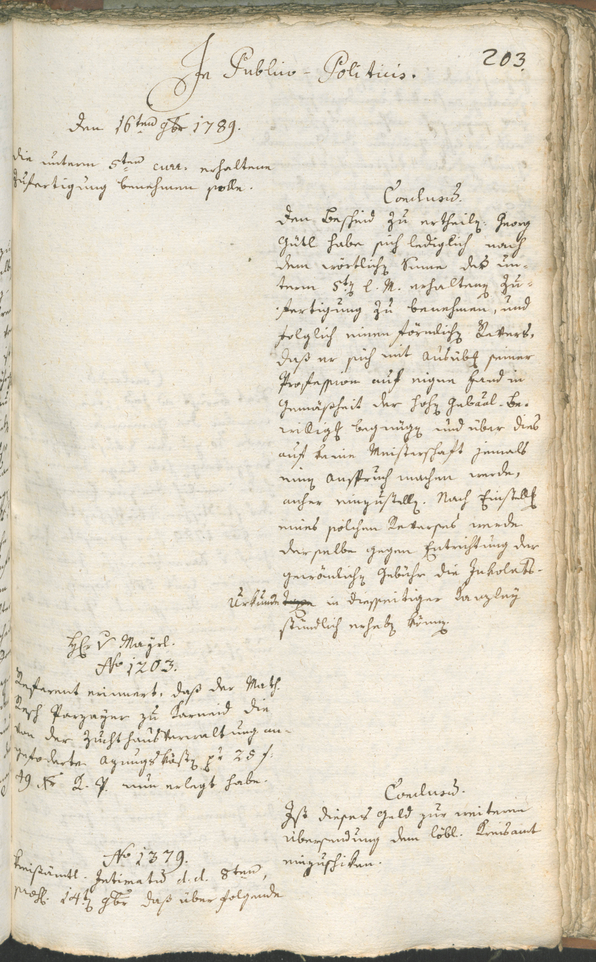 203
In Publico-Politicis.
Den 16ten 9br 1789.
die unterm 5ten curr. erhaltene
Zufertigung benehmen solle.
Conclusum.
Dem Bescheid zu ertheilen: Georg
Gütl habe sich lediglich nach
dem wörtlichen Sinne der un-
term 5ten l. M. erhaltenen Zu-
fertigung zu benehmen, und
folglich einen förmlichen Revers,
daß er sich mit Ausübung seiner
Profession auf eigne Hand in
Gemäßheit der hohen Gubernial-Be-
willigung begnügen und über dies
auf keine Meisterschaft jemals
einen Anspruch machen werde,
anher einzustellen. Nach Einstellung
eines solchen Reverses werde
derselbe gegen Entrichtung der
gewöhnlichen Gebühr die Inkolats-
Urkunde in diesseitiger Kanzley
stündlich erheben können.
Hr. v Mayrl.
No 1203.
Referent erinnert, daß der Math.
Resch Parzayer zu Karneid die
von der Zuchthausverwaltung an-
geforderte Azungskösten pr 25 f.
49 Xr R. W. nun erlegt habe.
Conclusum.
Ist dieses Geld zur weiteren
Übersendung dem löbl. Kreisamt
einzuschiken.
No 1379.
Kreisämtl. Intimatum d.d. 8ten,
praes. 14ten 9br daß über folgende